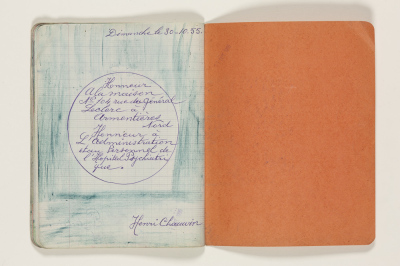 Dimanche le 30-10-55.
Honneur
A la maison
N° 104 rue du Général
Leclerc à
Armentières
Nord
Honneur à
L'Administration
et au Personnel de
l'Hôpital Psychiatri
que.
Henri Chauvin